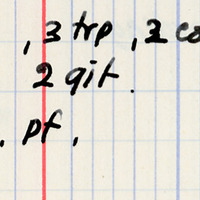 , 3 trp , 2 co
2 git .
, pf ,